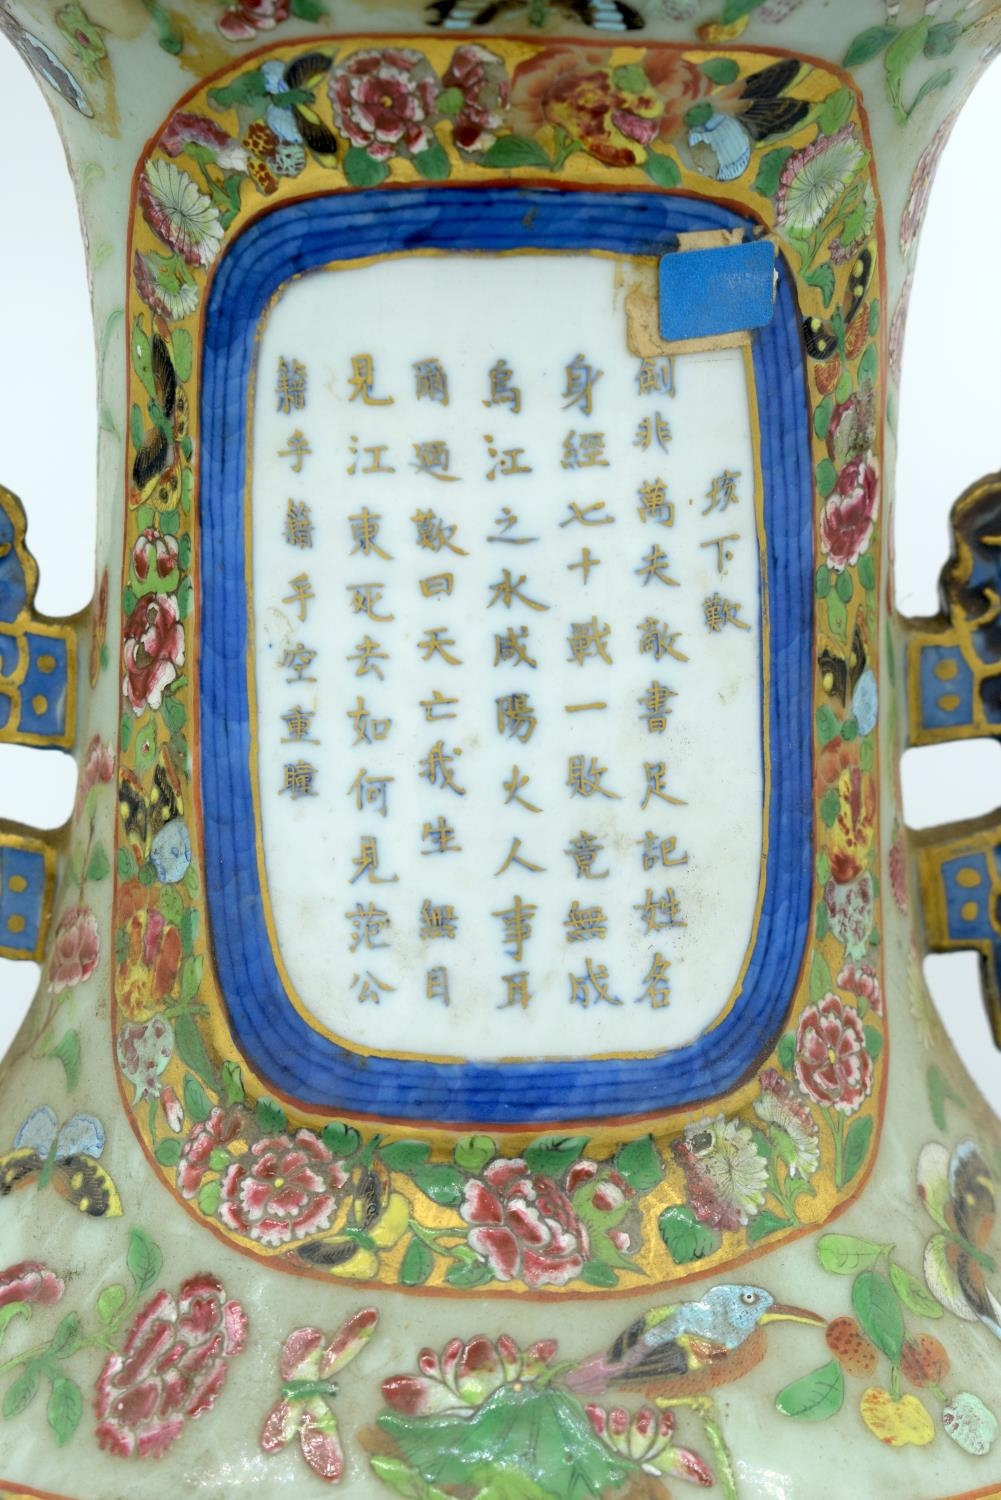 垓下歎
劍非萬夫敵書足記姓名
身經七十戰一敗竟無成
烏江之水咸陽火人事耳
爾迺歎曰天亡我生無目
見江東死去如何見范公
籍乎籍乎空重瞳